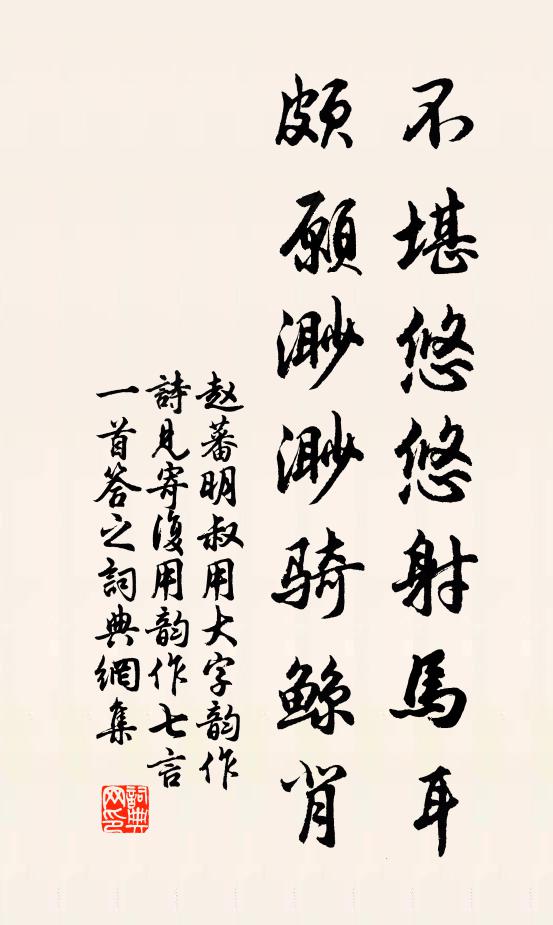 不堪悠悠射馬耳
頗願渺渺骑鲸背
赵蕃明叔用大字韵作
詩見寄復用韵作七言
一首答之詞典網集
詞典
网印